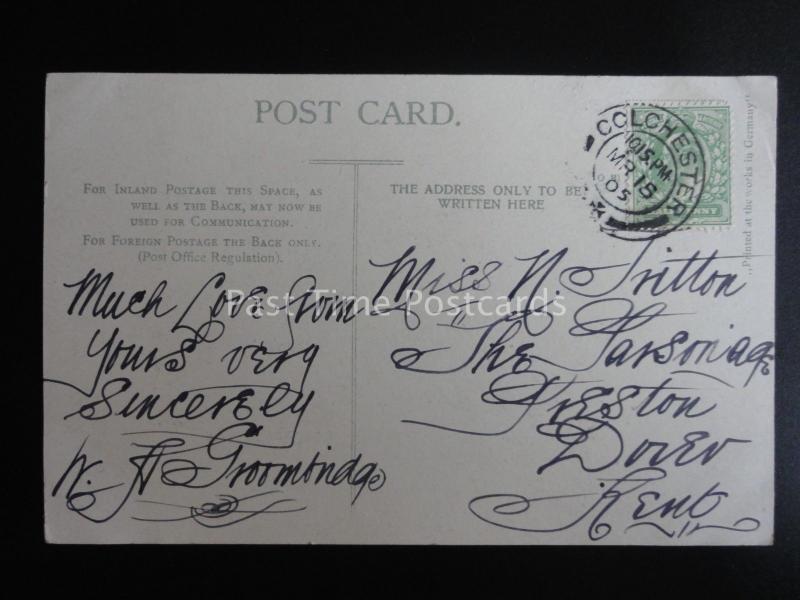 POST CARD.
FOR INLAND POSTAGE THIS SPACE, AS
WELL AS THE BACK, MAY NOW BE
USED FOR COMMUNICATION.
FOR FOREIGN POSTAGE THE BACK ONLY.
(Post Office Regulation).
THE ADDRESS ONLY TO BE
WRITTEN HERE
COLCHESTER
10.15.PM
MR 18
05
"Printed at the works in Germany"
Much Love from
yours very
Sincerely
W. A Groombridge
Miss N. Tritton
The Parsonage
Preston
Dover
Kent
Past Time Postcards